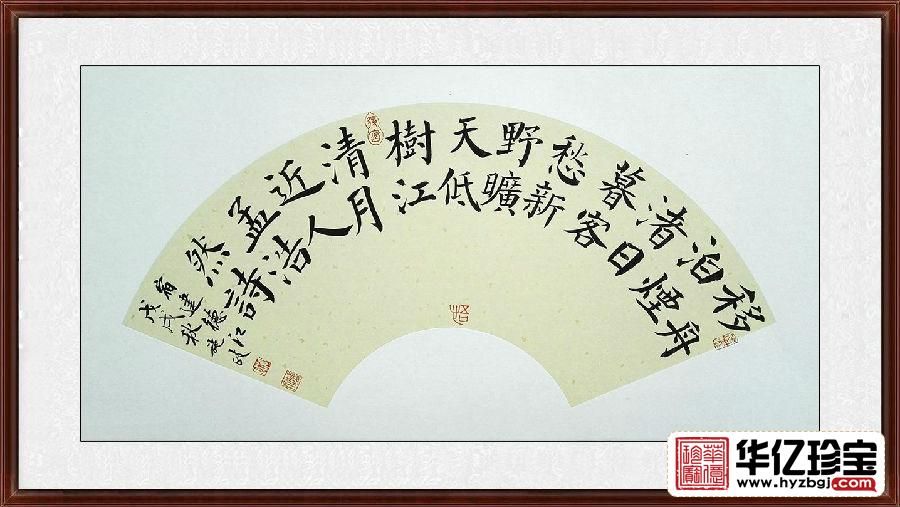 移舟
泊煙
渚日
暮客
愁新
野曠
天低
樹江
清月
近人
孟浩
然詩
宿建德江
戊戌秋施
華億
珍寶
华亿珍宝
www.hyzbgj.com